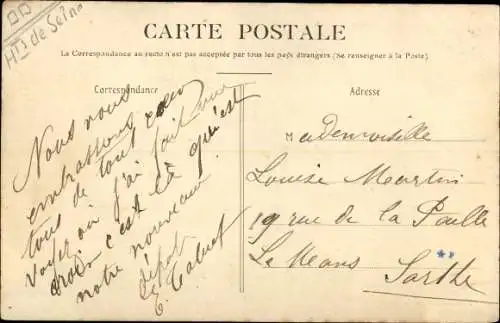 Hts de Seine
CARTE POSTALE
La Correspondance au recto n'est pas acceptée par tous les pays étrangers (Se renseigner à la Poste)
Correspondance
Nous nous
embrassons
tous de tout cœur
voyez où j'ai fait une
croix c'est là qu'est
notre nouveau
dépot
E.
Adresse
Mademoiselle
Louise Martin
19 rue de la Paille
Le Mans
Sarthe